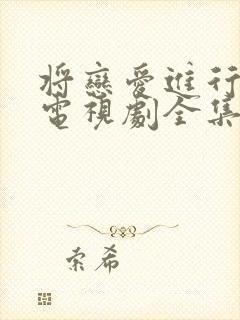 將戀愛進行
電視劇全集
索希